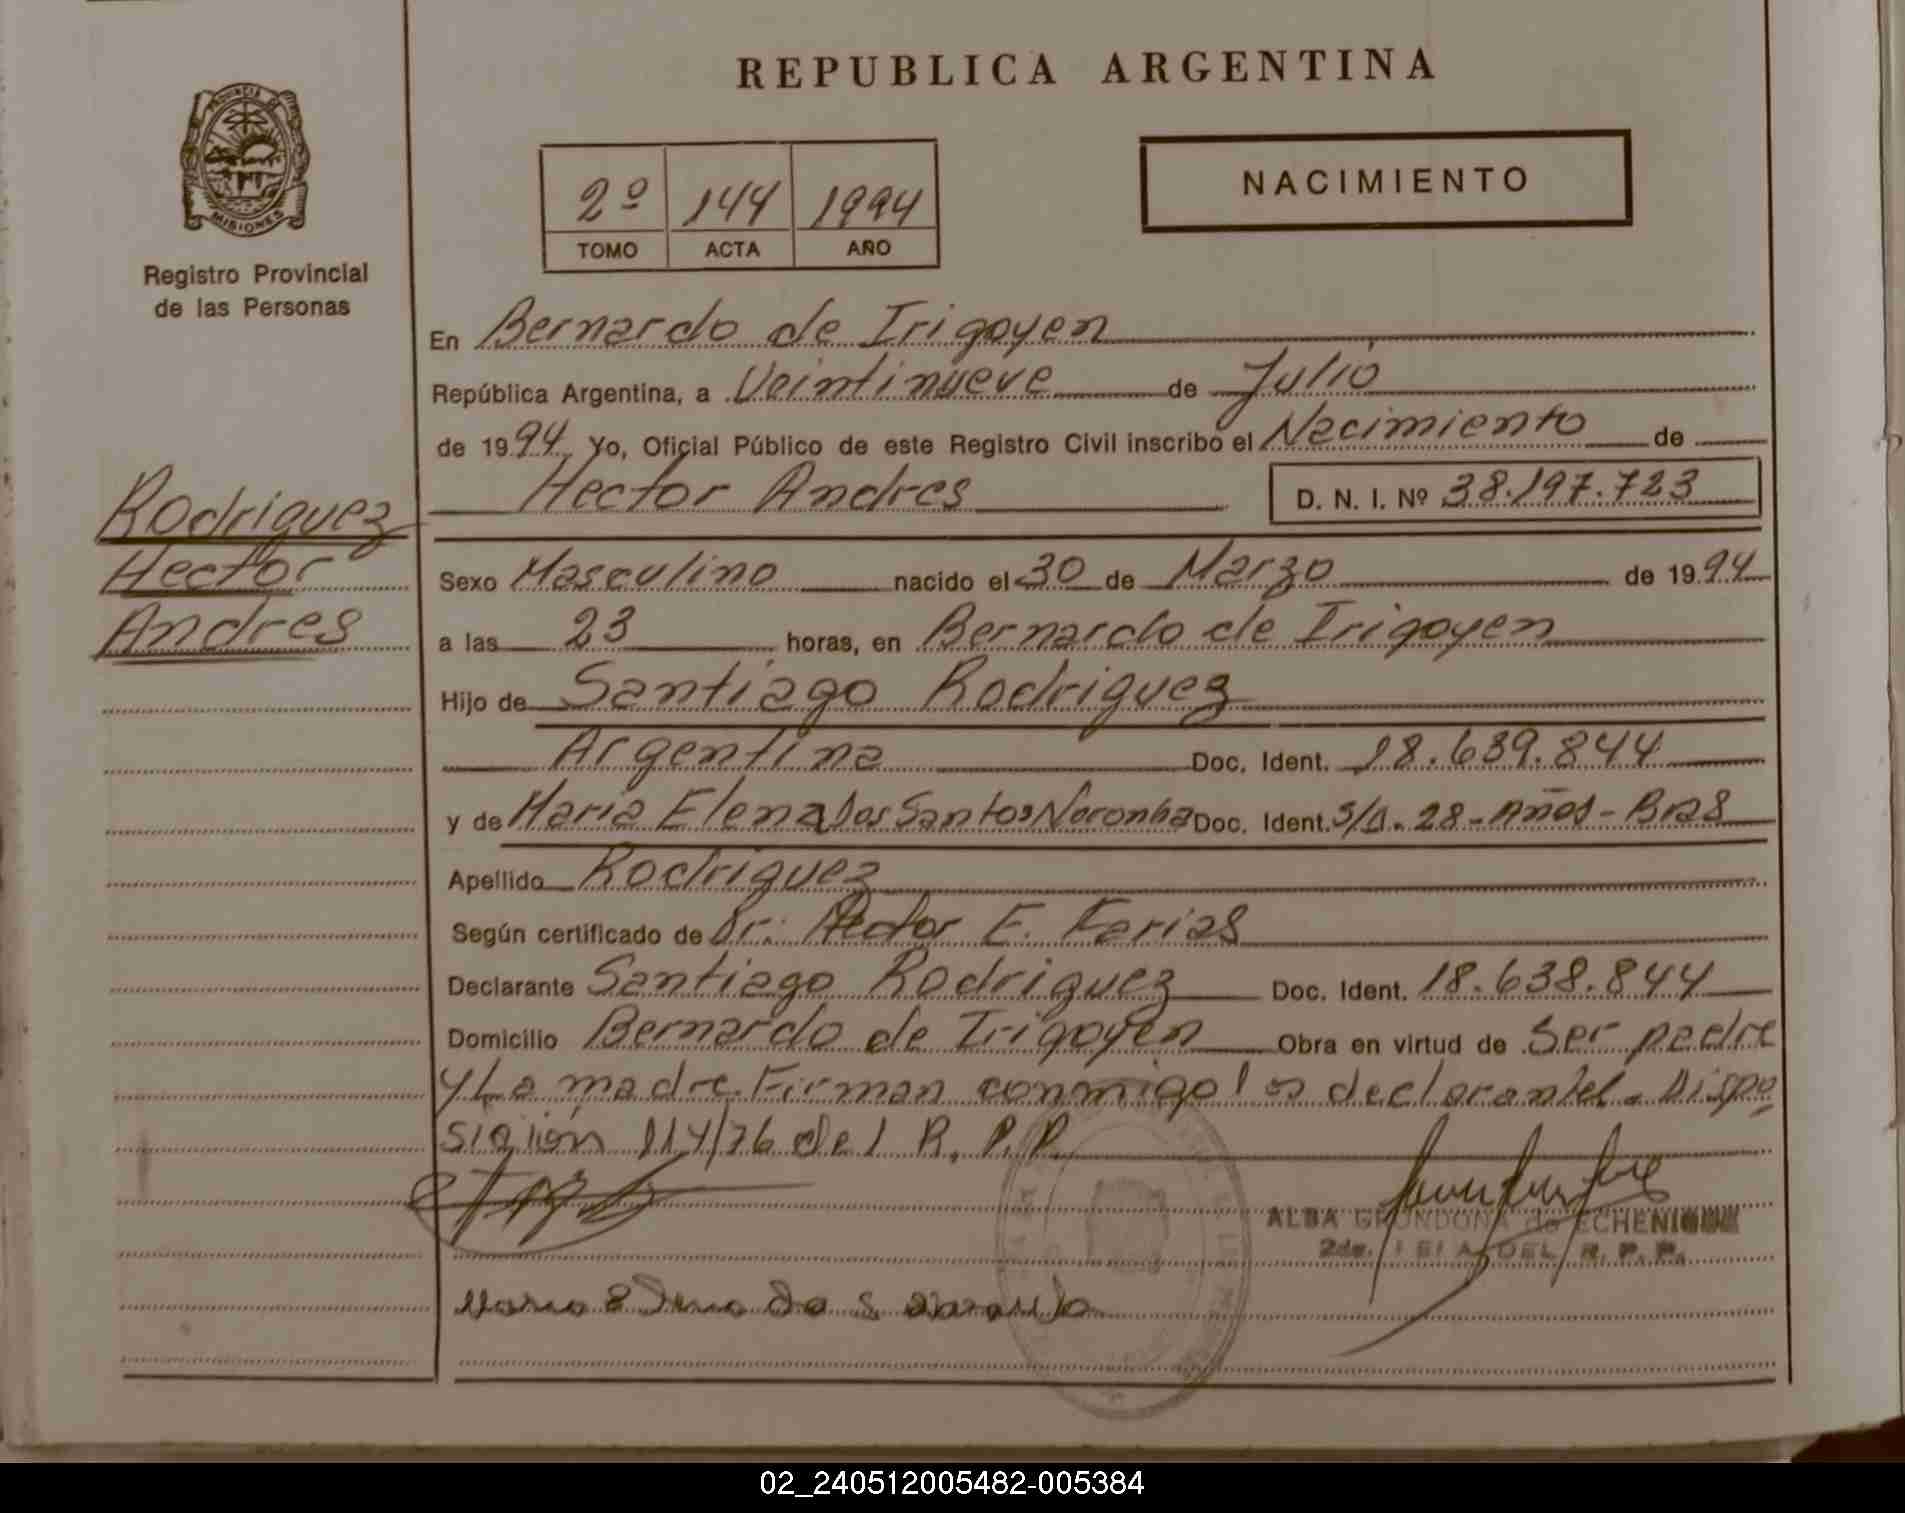 REPUBLICA ARGENTINA
PROVINCIA DE
MISIONES
Registro Provincial
de las Personas
2º 144 1994
TOMO ACTA AÑO
NACIMIENTO
En Bernardo de Irigoyen
República Argentina, a Veintinueve de Julio
de 1994 Yo, Oficial Público de este Registro Civil inscribo el Nacimiento de
Hector Andres D. N. I. Nº 38.197.723
Rodriguez
Hector
Andres
Sexo Masculino nacido el 30 de Marzo de 1994
a las 23 horas, en Bernardo de Irigoyen
Hijo de Santiago Rodriguez
Argentina Doc. Ident. 18.639.844
y de Maria Elena Dos Santos Noronha Doc. Ident. S/D. 28 - Años - Bras
Apellido Rodriguez
Según certificado de Dr. Hector E. Farias
Declarante Santiago Rodriguez Doc. Ident. 18.638.844
Domicilio Bernardo de Irigoyen Obra en virtud de Ser padre
y La madre. Firman conmigo los declarantes. Dispo
sición 114/76 del R. P. P.
ALBA GRONDONA de ECHENIQUE
DEL R. P. P.
02_240512005482-005384